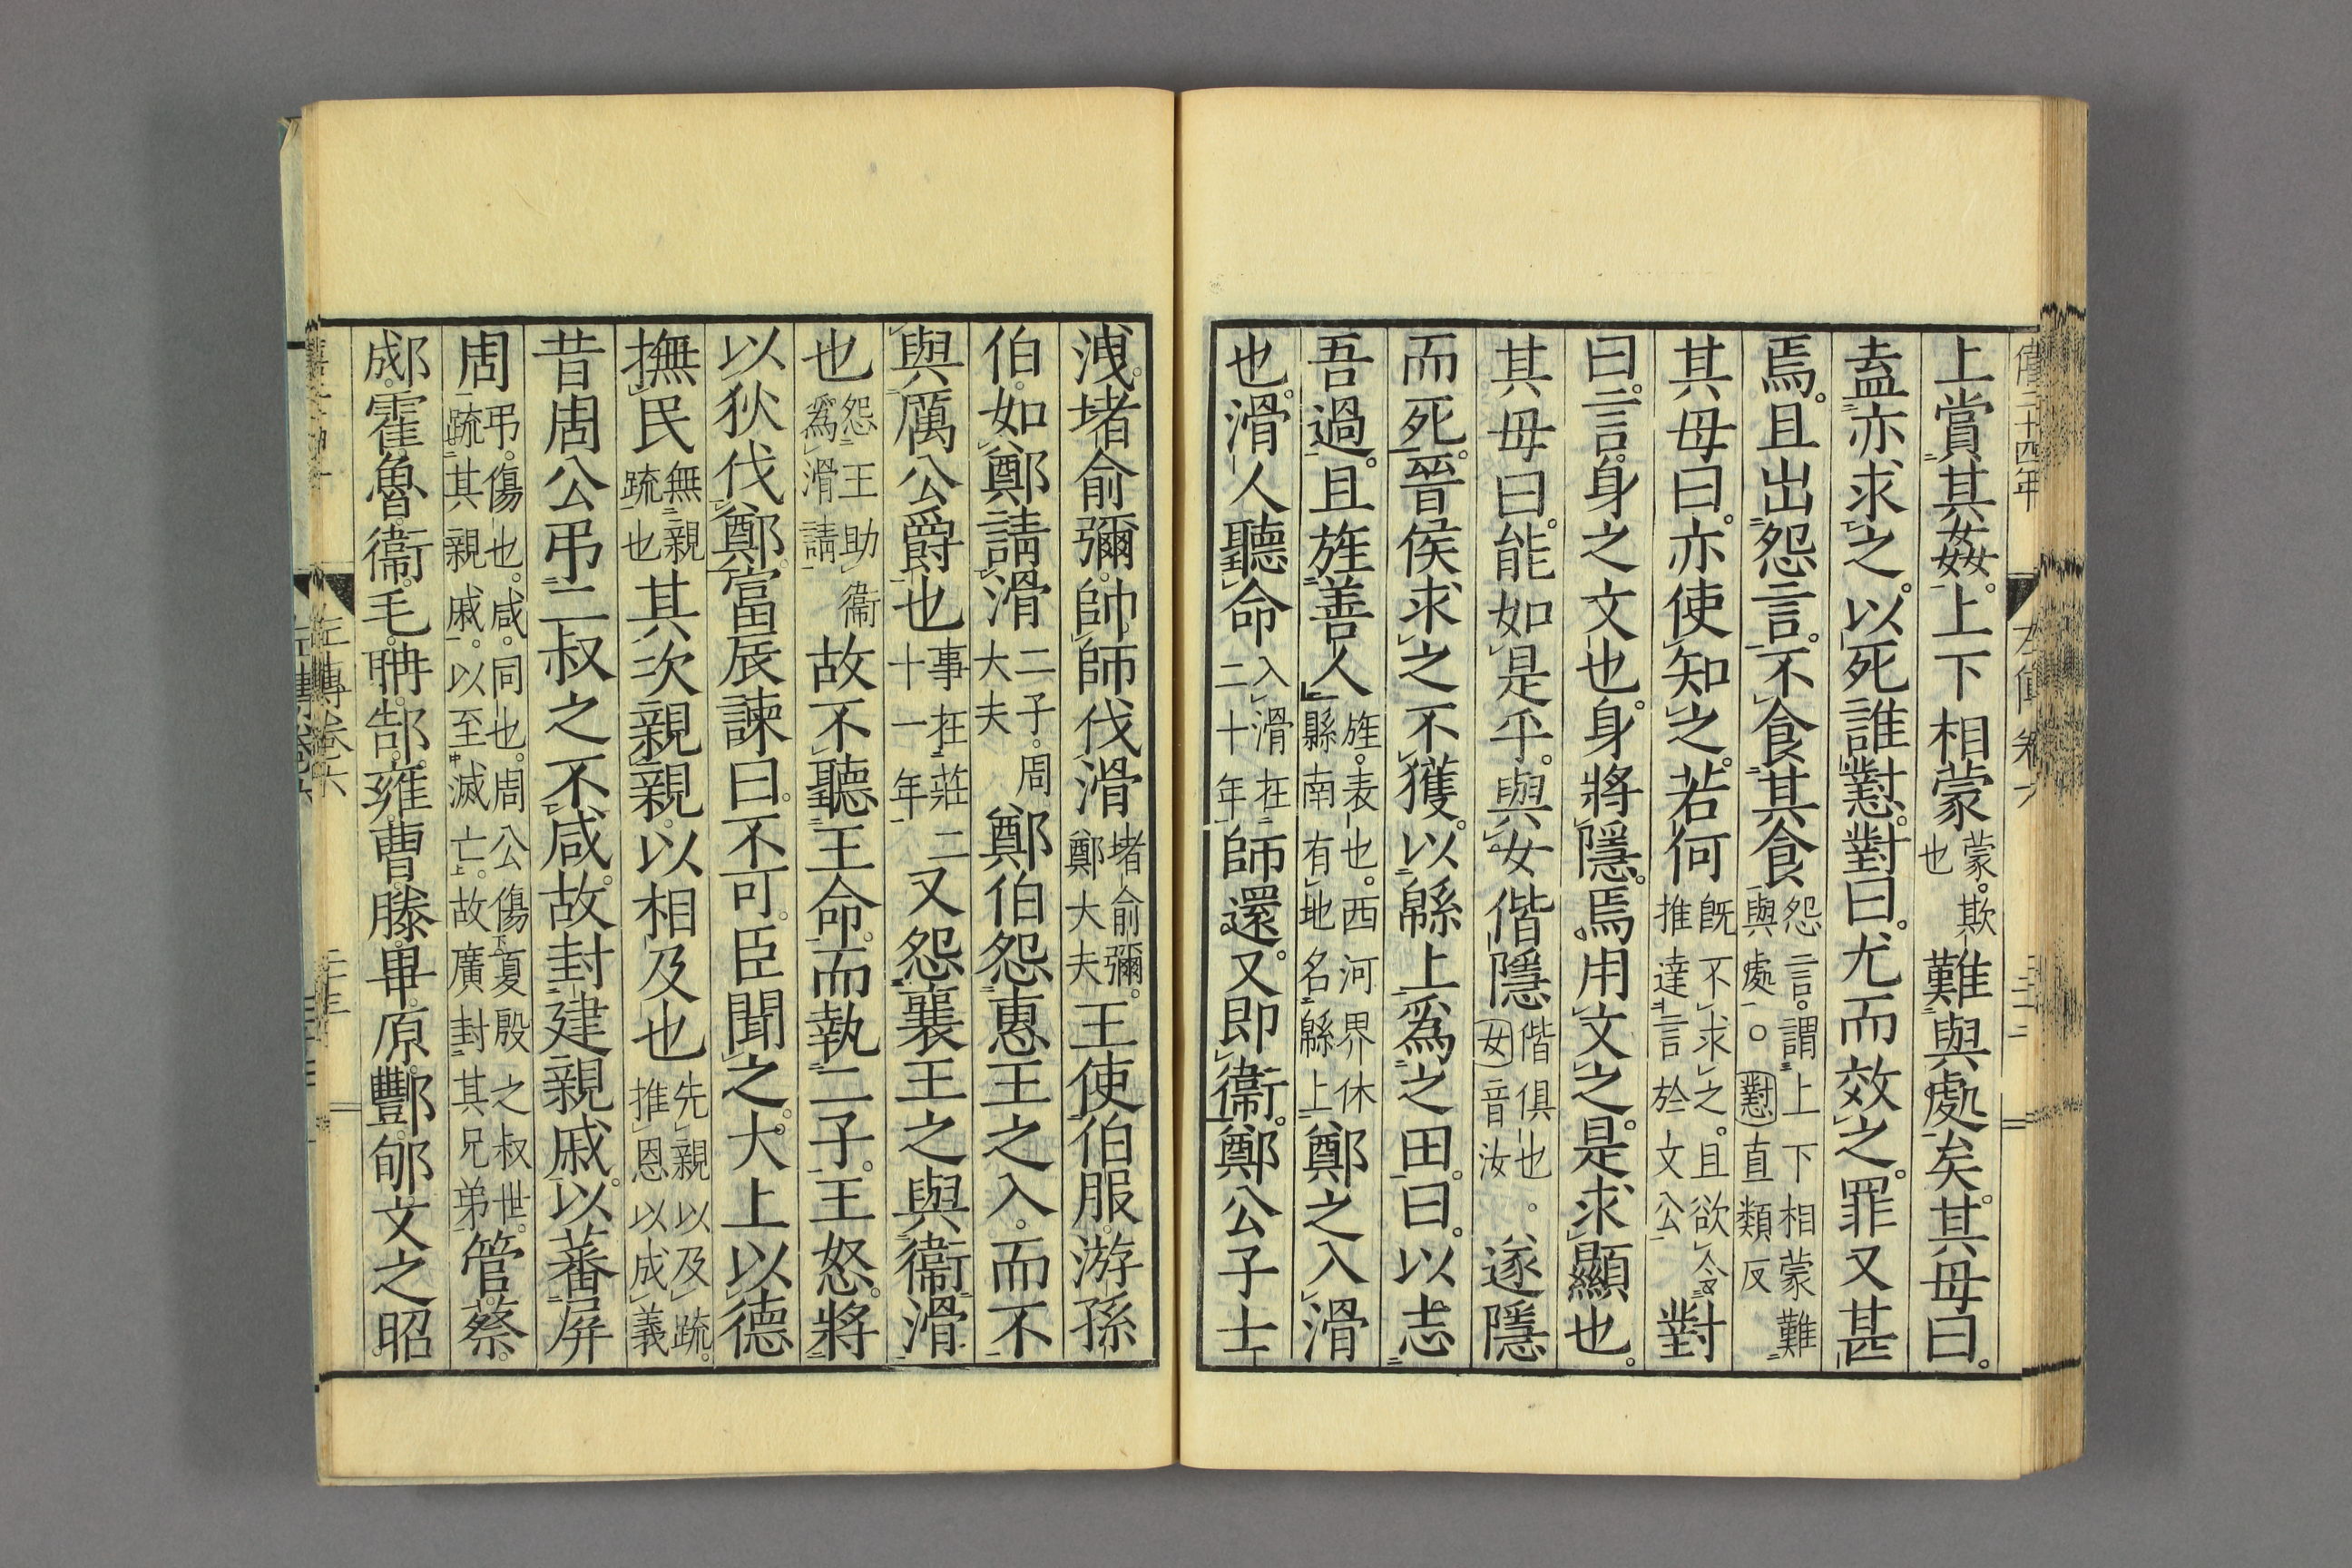 上賞其姦。上下相蒙蒙。欺也難與處矣。其母曰。
盍亦求之。以死誰懟。對曰。尤而效之。罪又甚
焉。且出怨言。不食其食怨言。謂上下相蒙難與處。○懟直類反
其母曰。亦使知之。若何既不求之。且欲令推達言於文公對
曰。言。身之文也。身將隱。焉用文之。是求顯也。
其母曰。能如是乎。與女偕隱偕俱也○女音汝遂隱
而死。晉侯求之不獲。以緜上爲之田。曰。以志
吾過。且旌善人旌。表也。西河界休縣南有地名緜上鄭之入滑
也。滑人聽命入滑在二十年師還。又即衞。鄭公子士
洩。堵俞彌。帥師伐滑堵俞彌。鄭大夫王使伯服。游孫
伯。如鄭請滑二子。周大夫鄭伯怨惠王之入。而不
與厲公爵也事在莊二十一年又怨襄王之與衞滑
也怨王助衞爲滑請故不聽王命。而執二子。王怒。將
以狄伐鄭。富辰諫曰。不可。臣聞之。大上以德
撫民無親疏也其次親親。以相及也先親以及疏。推恩以成義
昔周公弔二叔之不咸。故封建親戚。以蕃屏
周弔。傷也。咸。同也。周公傷夏殷之叔世。疏其親戚。以至滅亡。故廣封其兄弟管。蔡。
郕。霍。魯。衞。毛。聃。郜。雍。曹。滕。畢。原。酆。郇。文之昭
左傳卷六